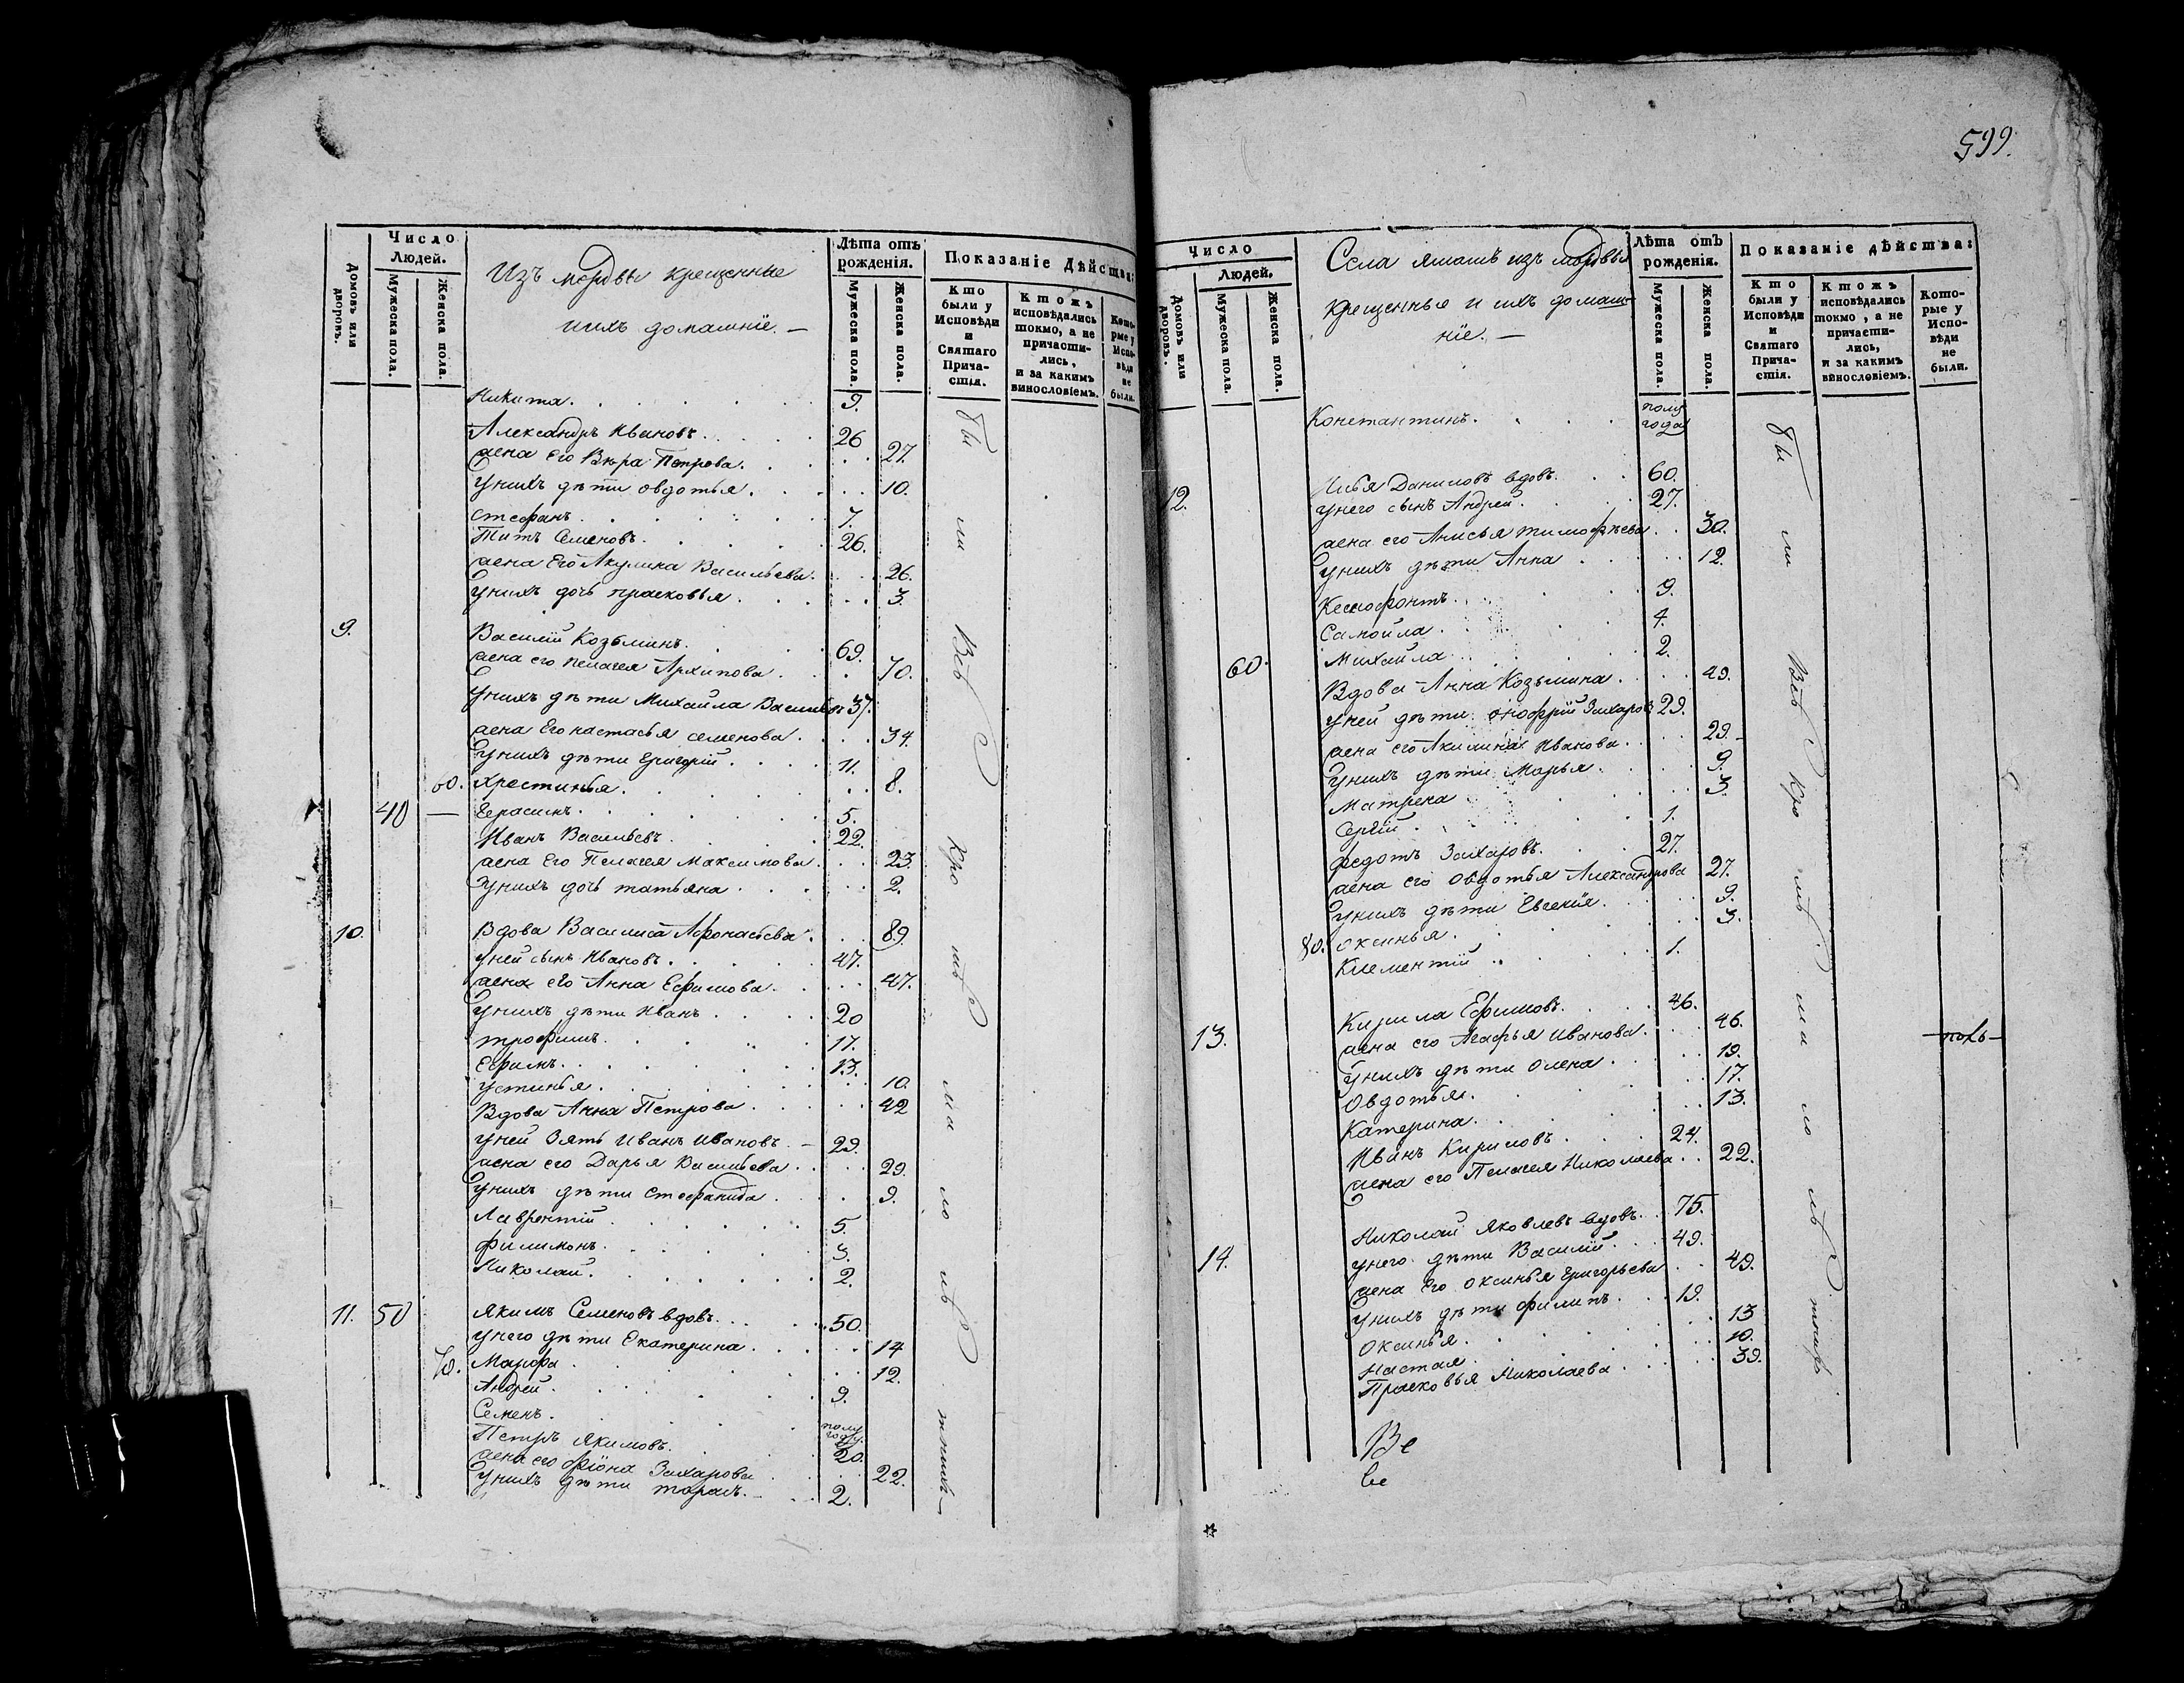 Число
Людей.
Домовъ или дворовъ.
Мужеска пола.
Женска пола.
Изъ мордвы крещенные
ихъ домашнїе. —
Лѣта отъ рожденїя.
Мужеска пола.
Женска пола.
Показанїе Дѣйства:
Кто были у Исповѣди и Святаго Прича- стїя.
Ктожъ исповѣдались токмо, а не причасти- лись, и за какимъ винословїемъ.
Кото- рые у Испо- вѣди не были.
Никита. 9.
Александръ Ивановъ. 26
жена его Вѣра Петрова. 27.
Унихъ дѣти овдотья. 10.
Стефанъ. 7.
Титъ Семеновъ. 26.
жена Его Акулина Васильева. 26.
Унихъ дочь прасковья. 3.
9. Василїй Козьминъ. 69.
жена его пелагея Архипова. 70.
Унихъ дѣти Михайла Васильевъ 37.
жена Его настасья семенова. 34.
Унихъ дѣти Григорїй. 11.
60. Христинья. 8.
40 — Герасимъ. 5.
Иванъ Васильевъ. 22.
жена Его Пелагея Максимова. 23
Унихъ дочь татьяна. 2.
10. Вдова Василиса Афонасьева. 89.
Уней сынъ Ивановъ. 47.
жена его Анна Ефимова. 47.
Унихъ дѣти Иванъ. 20
трофимъ. 17.
Ефимъ. 13.
Устинья. 10.
Вдова Анна Петрова. 42
Уней Зять Иванъ Ивановъ. — 29.
жена его Дарья Васильева. 29.
Унихъ дѣти Стефанида. 9.
Лаврентїй. 5.
филимонъ. 3.
Николай. 2.
11. 50 Якимъ Семеновъ вдовъ. 50.
Унего дѣти Екатерина. 14
70. Марфа. 12.
Андрей. 9.
Семенъ. полу году.
Петръ Якимовъ. 20.
жена его Захарова 22.
Унихъ дѣти тарасъ. — 2.
бы ли Всѣ Кро мѣ ма ло лѣ тнихъ —
599.
Число
Людей.
Домовъ или дворовъ.
Мужеска пола.
Женска пола.
Села изъ мордвы
крещенныя и ихъ домаш-
нїе. —
Лѣта отъ рожденїя.
Мужеска пола.
Женска пола.
Показанїе дѣйства:
Кто были у Исповѣди и Святаго Прича- стїя.
Ктожъ исповѣдались токмо, а не причасти- лись, и за какимъ винословїемъ.
Кото- рые у Испо- вѣди не были.
Константинъ. полу года
12. Даниловъ вдовъ. 60.
Унего сынъ Андрей. 27.
жена его Анисья тимофѣева. 30.
Унихъ дѣти Анна 12.
Ксенофонтъ. 9.
Самойла. 4.
Михайла. 2.
60. Вдова Анна Козьмина. 49.
Уней дѣти онофрїй Захаровъ 29.
жена его Акилина Иванова. 29.
Унихъ дѣти Марья. 9.
Матрена. 3.
Сергїй. 1.
федотъ Захаровъ. 27.
жена его Овдотья Александрова 27.
Унихъ дѣти Евгенїя. 9.
80. оксинья. 3.
Клементїй. 1.
Кирила Ефимовъ. 46.
13. жена его Агафья иванова. 46.
Унихъ дѣти Олена. 19.
Овдотья. 17.
Катерина. 13.
Иванъ Кириловъ. 24.
жена его Пелагея Николаева. 22.
Николай Яковлевъ вдовъ. 75.
14. Унего дѣти Василїй. 49.
жена Его Оксинья Григорьева 49.
Унихъ дѣти филипъ. 19.
Оксинья. 13
Настася. 10.
Прасковья Николаева. 39.
Ве
ве
бы ли Всѣ Кро мѣ ма ло лѣ тнихъ